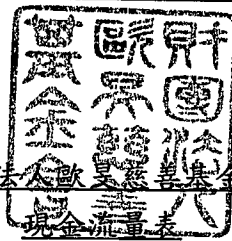 財團法人
歐慈善
基金會
法人歐慈善基金
現金流量表